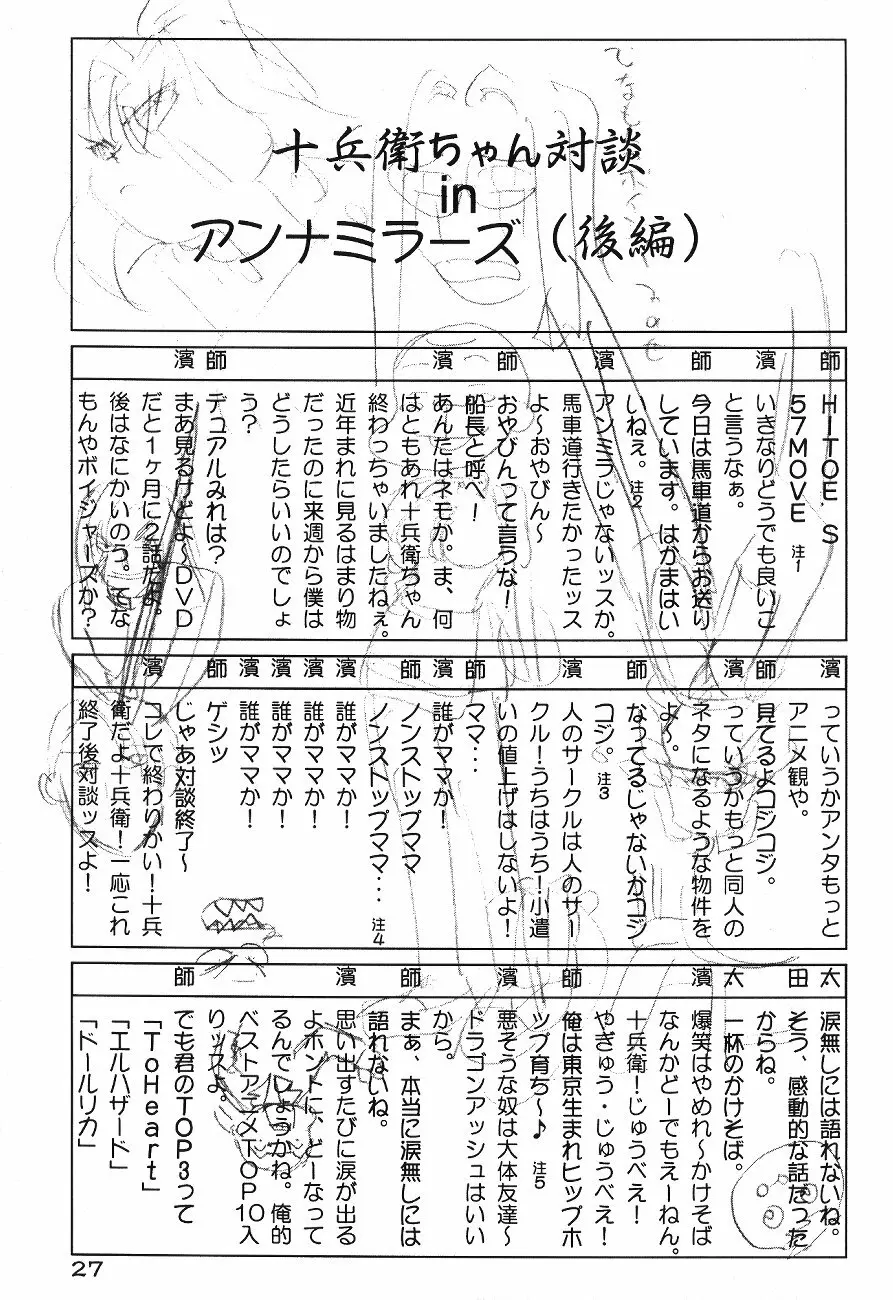 十兵衛ちゃん対談
in
アンナミラーズ（後編）
師
HITOE'S
57MOVE 注1
濱
いきなりどうでも良いこ
と言うなぁ。
師
今日は馬車道からお送り
しています。はかまはい
いねぇ。注2
濱
アンミラじゃないッスか。
馬車道行きたかったッス
よ～おやびん～
師
おやびんって言うな！
船長と呼べ！
濱
あんたはネモか。ま、何
はともあれ十兵衛ちゃん
終わっちゃいましたねぇ。
近年まれに見るはまり物
だったのに来週から僕は
どうしたらいいのでしょ
う？
師
デュアルみれは？
濱
まあ見るけどよ～DVD
だと1ヶ月に2話だよ。
後はなにかいのう。てな
もんやボイジャーズか？
濱
っていうかアンタもっと
アニメ観や。
師
見てるよコジコジ。
太
っていうかもっと同人の
ネタになるような物件を
よ～。
師
なってるじゃないかコジ
コジ。注3
濱
人のサークルは人のサー
クル！うちはうち！小遣
いの値上げはしないよ！
師
ママ・・・
濱
誰がママか！
師
ノンストップママ
師
ノンストップママ・・・ 注4
濱
誰がママか！
濱
誰がママか！
濱
誰がママか！
濱
誰がママか！
師
ゲシッ
じゃあ対談終了～
濱
コレで終わりかい！十兵
衛だよ十兵衛！一応これ
終了後対談ッスよ！
太
涙無しには語れないね。
田
そう、感動的な話だった
からね。
太
一杯のかけそば。
濱
爆笑はやめれ～かけそば
なんかどーでもえーねん。
十兵衛！じゅうべえ！
やぎゅう・じゅうべえ！
師
俺は東京生まれヒップホ
ップ育ち～♪ 注5
濱
悪そうな奴は大体友達～
ドラゴンアッシュはいい
から。
師
まぁ、本当に涙無しには
語れないね。
濱
思い出すたびに涙が出る
よホントに、どーなって
るんでしょうかね。俺的
ベストアニメTOP10入
りッスよ。
師
でも君のTOP3って
「ToHeart」
「エルハザード」
「ドールリカ」
27